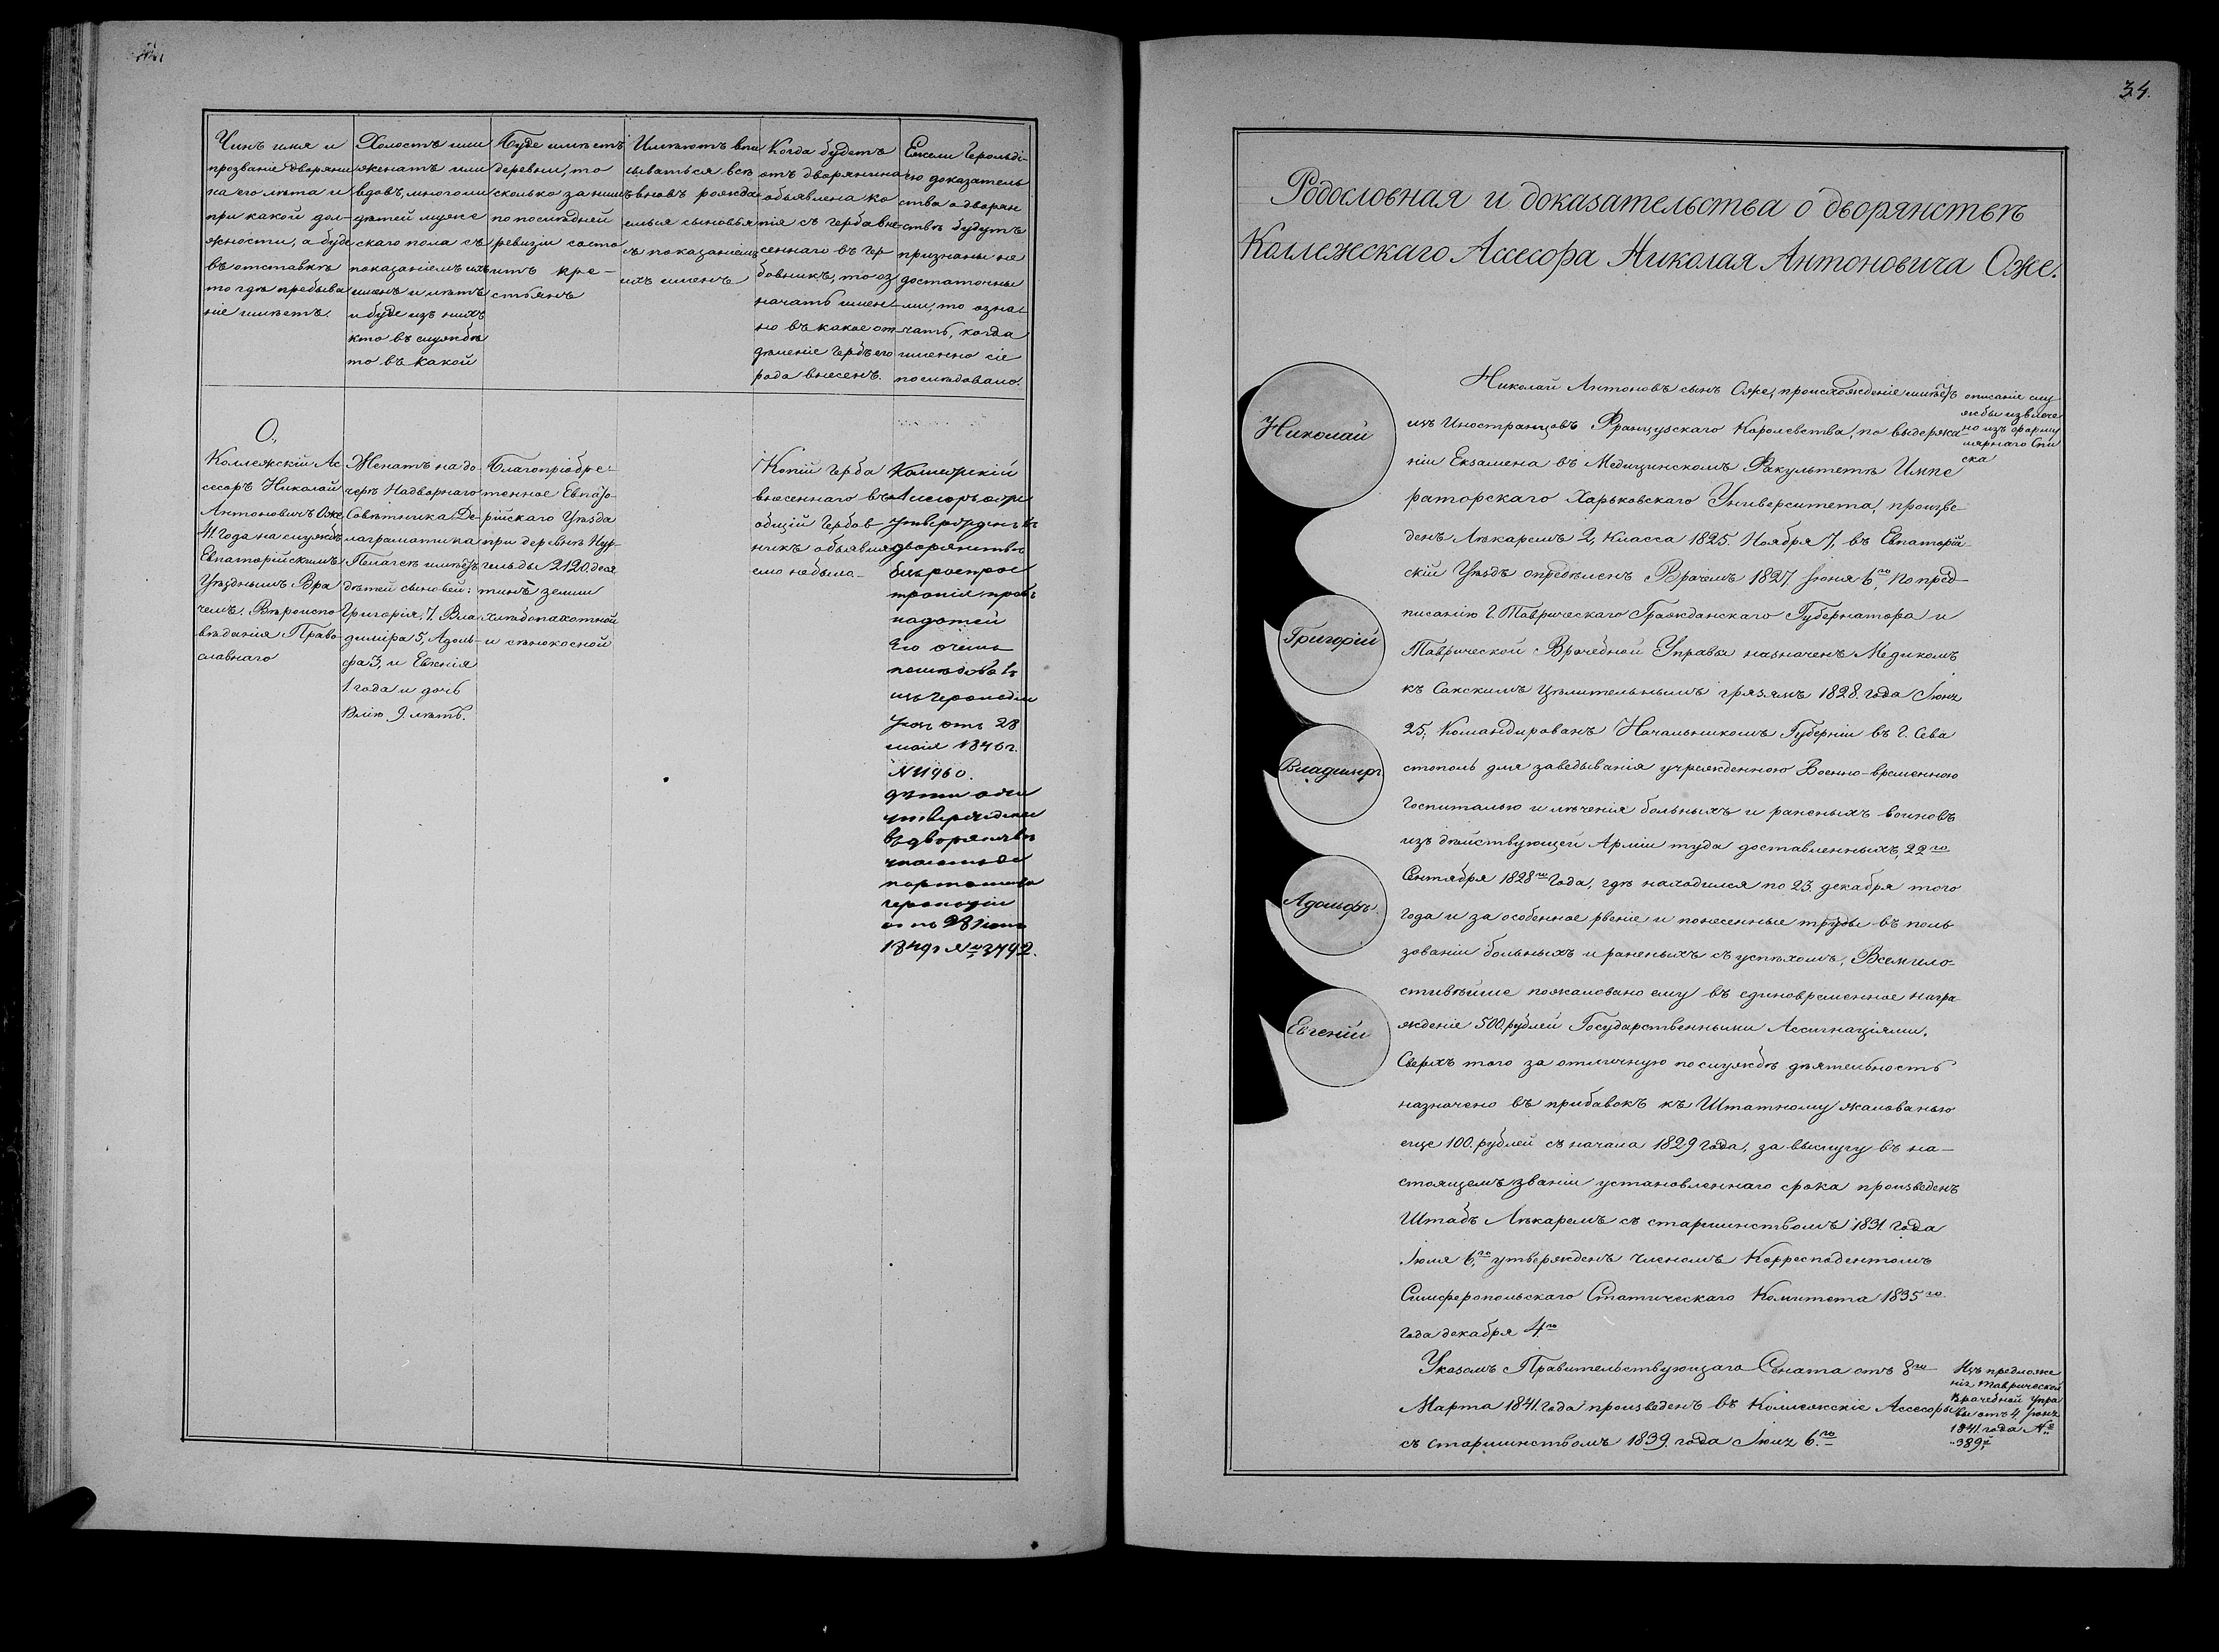 Чинъ имя и
прозваніе дворяни
на его лѣта и
при какой дол-
жности, а буде
въ отставкѣ
то гдѣ пребыва
ніе имѣетъ.
Холостъ или
женатъ или
вдовъ, многоли
дѣтей мужс
скаго пола съ
показаніемъ ихъ
именъ и лѣтъ
и буде изъ нихъ
кто въ службѣ
то въ какой
Буде имѣетъ
деревни, то
сколько за нимъ
по послѣдней
ревизіи состо
итъ кре-
стьянъ
Имѣютъ впи
сываться всѣ
вновь рожда
емыя сыновья
съ показаніемъ
ихъ именъ
Когда будетъ
отъ дворянина
объявлена ко
пія съ герба вне
сеннаго въ гер
бовникъ, то оз
начать имен-
но въ какое от-
дѣленіе гербъ его
рода внесенъ.
Ежели Герольді-
ею доказатель
ства о дворян
ствѣ будутъ
признаны не
достаточны
ми, то озна-
чать, когда
именно сіе
послѣдовало.
О,,
Коллежскій Ас
сесоръ Николай
Антоновичъ Оже
41 года на службѣ
Евпаторійскимъ
Уѣзднымъ Вра
чемъ. Вѣроиспо
вѣданія Право
славнаго
Женатъ на до
черѣ Надворнаго
Совѣтника Де-
лаграматика
Пелагеѣ имѣетъ
дѣтей сыновей:
Григорія, 7. Вла
диміра 5, Адоль-
фа 3, и Евгенія
1 года и дочь
Юлію 9. лѣтъ.
Благопріобре-
тенное Евпато-
рійскаго Уѣзда
при деревнѣ Нур-
гельды 2120. деся
тинъ земли
хлѣбопахотной
и сѣнокосной
Копіи Герба
внесеннаго въ
общій Гербов-
никъ объявле
емо небыло-
Коллежскій
Ассесоръ Оже
утвержденъ въ
дворянствѣ
безъ распрос
траненія правъ
на дѣтей
Его о чемъ
послѣдовалъ
изъ Герольдіи
указъ отъ 28
мая 1846 г.
N 11960.
дѣти Оже
утверждены
въ дворянствѣ
герольдіи
1849 г № 3792.
34.
Родословная и доказательства о дворянствѣ
Коллежскаго Ассесора Николая Антоновича Оже.
Николай
Григорій
Владиміръ
Адольфъ
Евгеній
Николай Антоновъ сынъ Оже, происхожденіе имѣетъ
изъ Иностранцовъ Французскаго Королевства, по выдержа-
ніи Екзамена въ Медицинскомъ Факультетѣ Импе
раторскаго Харьковскаго Университета, произве-
денъ Лѣкаремъ 2, Класса 1825. Ноября 7, въ Евпаторій-
скій Уѣздъ опредѣленъ Врачемъ 1827. Іюня 6.го, по пред-
писанію Г. Таврическаго Гражданскаго Губернатора и
Таврической Врачебной Управы назначенъ Медикомъ
къ Сакскимъ цѣлительнымъ грязямъ 1828. года Іюня
25, Командированъ Начальникомъ Губерніи въ г. Сева
стополь для заведыванія учрежденною Военно-временною
Госпиталью и лѣченія больныхъ и раненыхъ воиновъ
изъ дѣйствующей Арміи туда доставленныхъ, 22го
Сентября 1828го Года, гдѣ находился по 23. декабря того
года и за особенное рвеніе и понесенные труды въ поль
зованіи больныхъ и раненыхъ съ успѣхомъ, Всемило-
стивѣйше пожаловано ему въ единовременное награ-
жденіе 500. рублей Государственными Ассигнаціями.
Сверхъ того за отличную по службѣ дѣятельность
назначено въ прибавокъ къ Штатному жалованью
еще 100. рублей съ начала 1829 года, за выслугу въ на-
стоящемъ званіи установленнаго срока произведенъ
Штабъ Лѣкаремъ съ старшинствомъ 1831. года
Іюля 6,го утвержденъ членомъ Корресподентомъ
Симферопольскаго Статическаго Комитета 1835го
года декабря 4го
Указомъ Правительствующаго Сената отъ 8го
Марта 1841. года произведенъ въ Коллежскіе Ассесоры
съ старшинствомъ 1839. года Іюля 6.го
описаніе слу
жбы извлече
но изъ форму
лярнаго Спи
ска
Изъ предложе
нія Таврической
Врачебной Упра
вы отъ 4 Іюня
1841 года №
389.